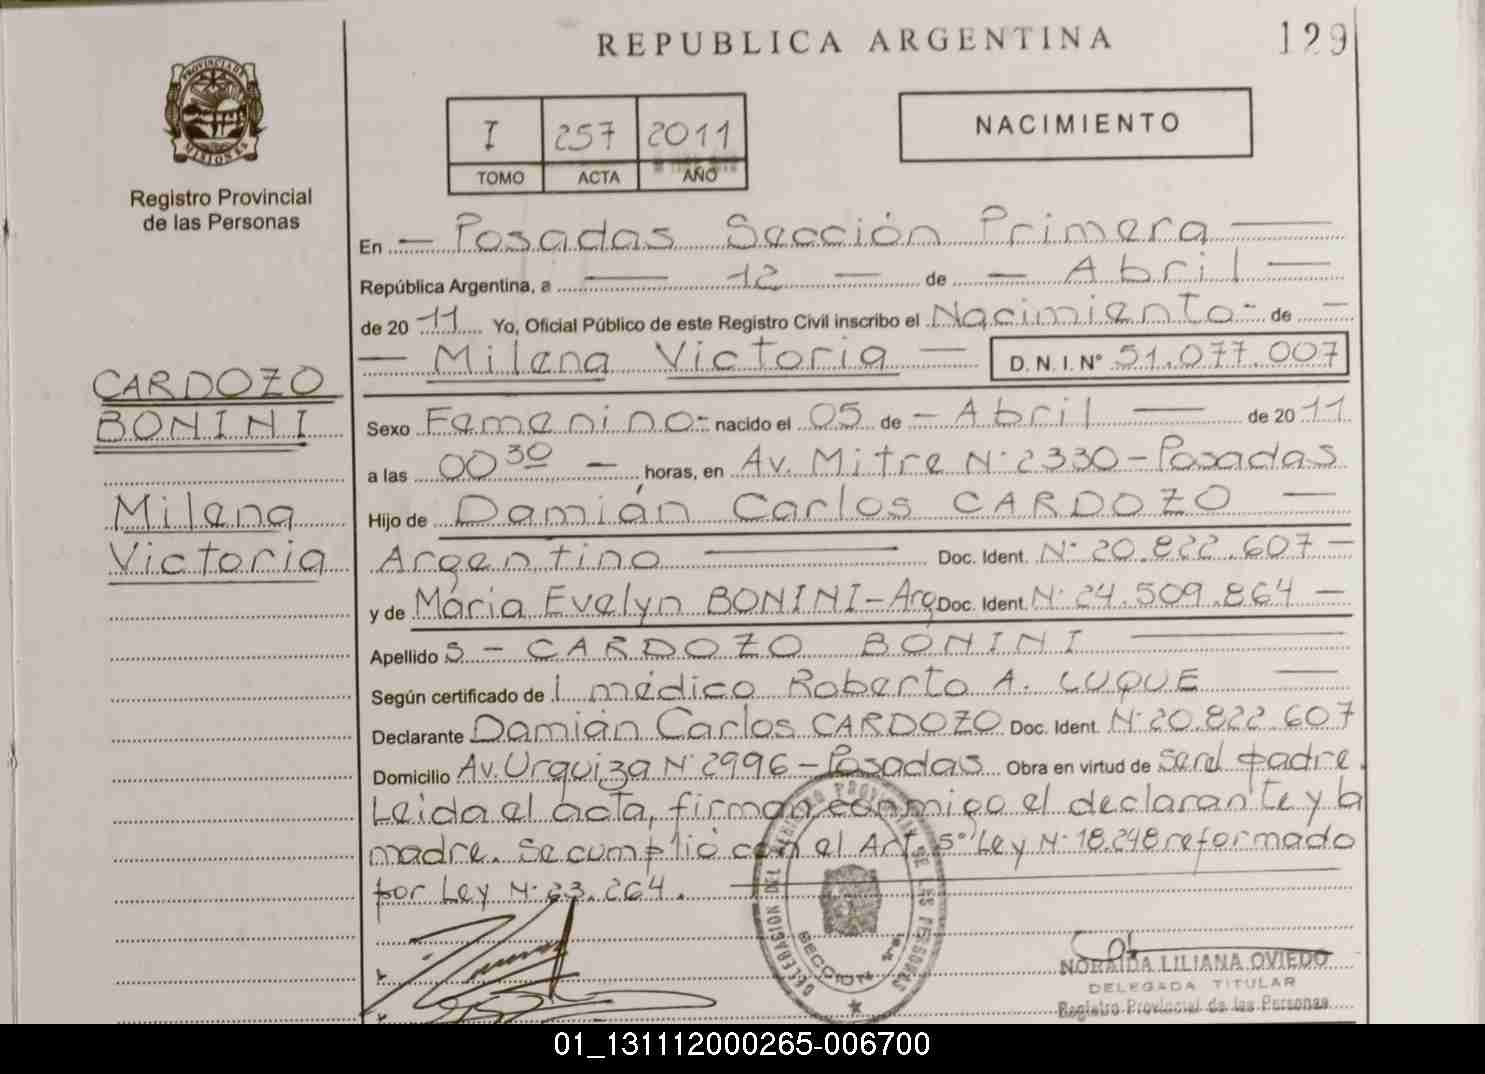 REPUBLICA ARGENTINA
129
PROVINCIA DE
MISIONES
Registro Provincial
de las Personas
I 257 2011
TOMO ACTA AÑO
NACIMIENTO
En — Posadas Sección Primera —
República Argentina, a — 12 — de — Abril —
de 2011 Yo, Oficial Público de este Registro Civil inscribo el Nacimiento - de —
— Milena Victoria — D. N. I. Nº 51.077.007
CARDOZO
BONINI
Milena
Victoria
Sexo Femenino - nacido el 05 de — Abril — de 2011
a las 00 30 — horas, en Av. Mitre Nº 2330 - Posadas
Hijo de Damián Carlos CARDOZO —
Argentino — Doc. Ident. Nº 20.822.607 —
y de María Evelyn BONINI - Arg Doc. Ident. Nº 24.509.864 —
Apellido s - CARDOZO BONINI —
Según certificado de l médico Roberto A. LUQUE —
Declarante Damián Carlos CARDOZO Doc. Ident. Nº 20.822.607
Domicilio Av. Urquiza Nº 2996 - Posadas Obra en virtud de ser el padre.
Leida el acta, firman conmigo el declarante y la
madre. Se cumplió con el Art. 5º Ley Nº 18.248 reformado
por Ley Nº 23.264. —
DELEGACION DEL REGISTRO PROVINCIAL DE LAS PERSONAS
SECCION 1ra
NORAIDA LILIANA OVIEDO
DELEGADA TITULAR
Registro Provincial de las Personas
01_131112000265-006700